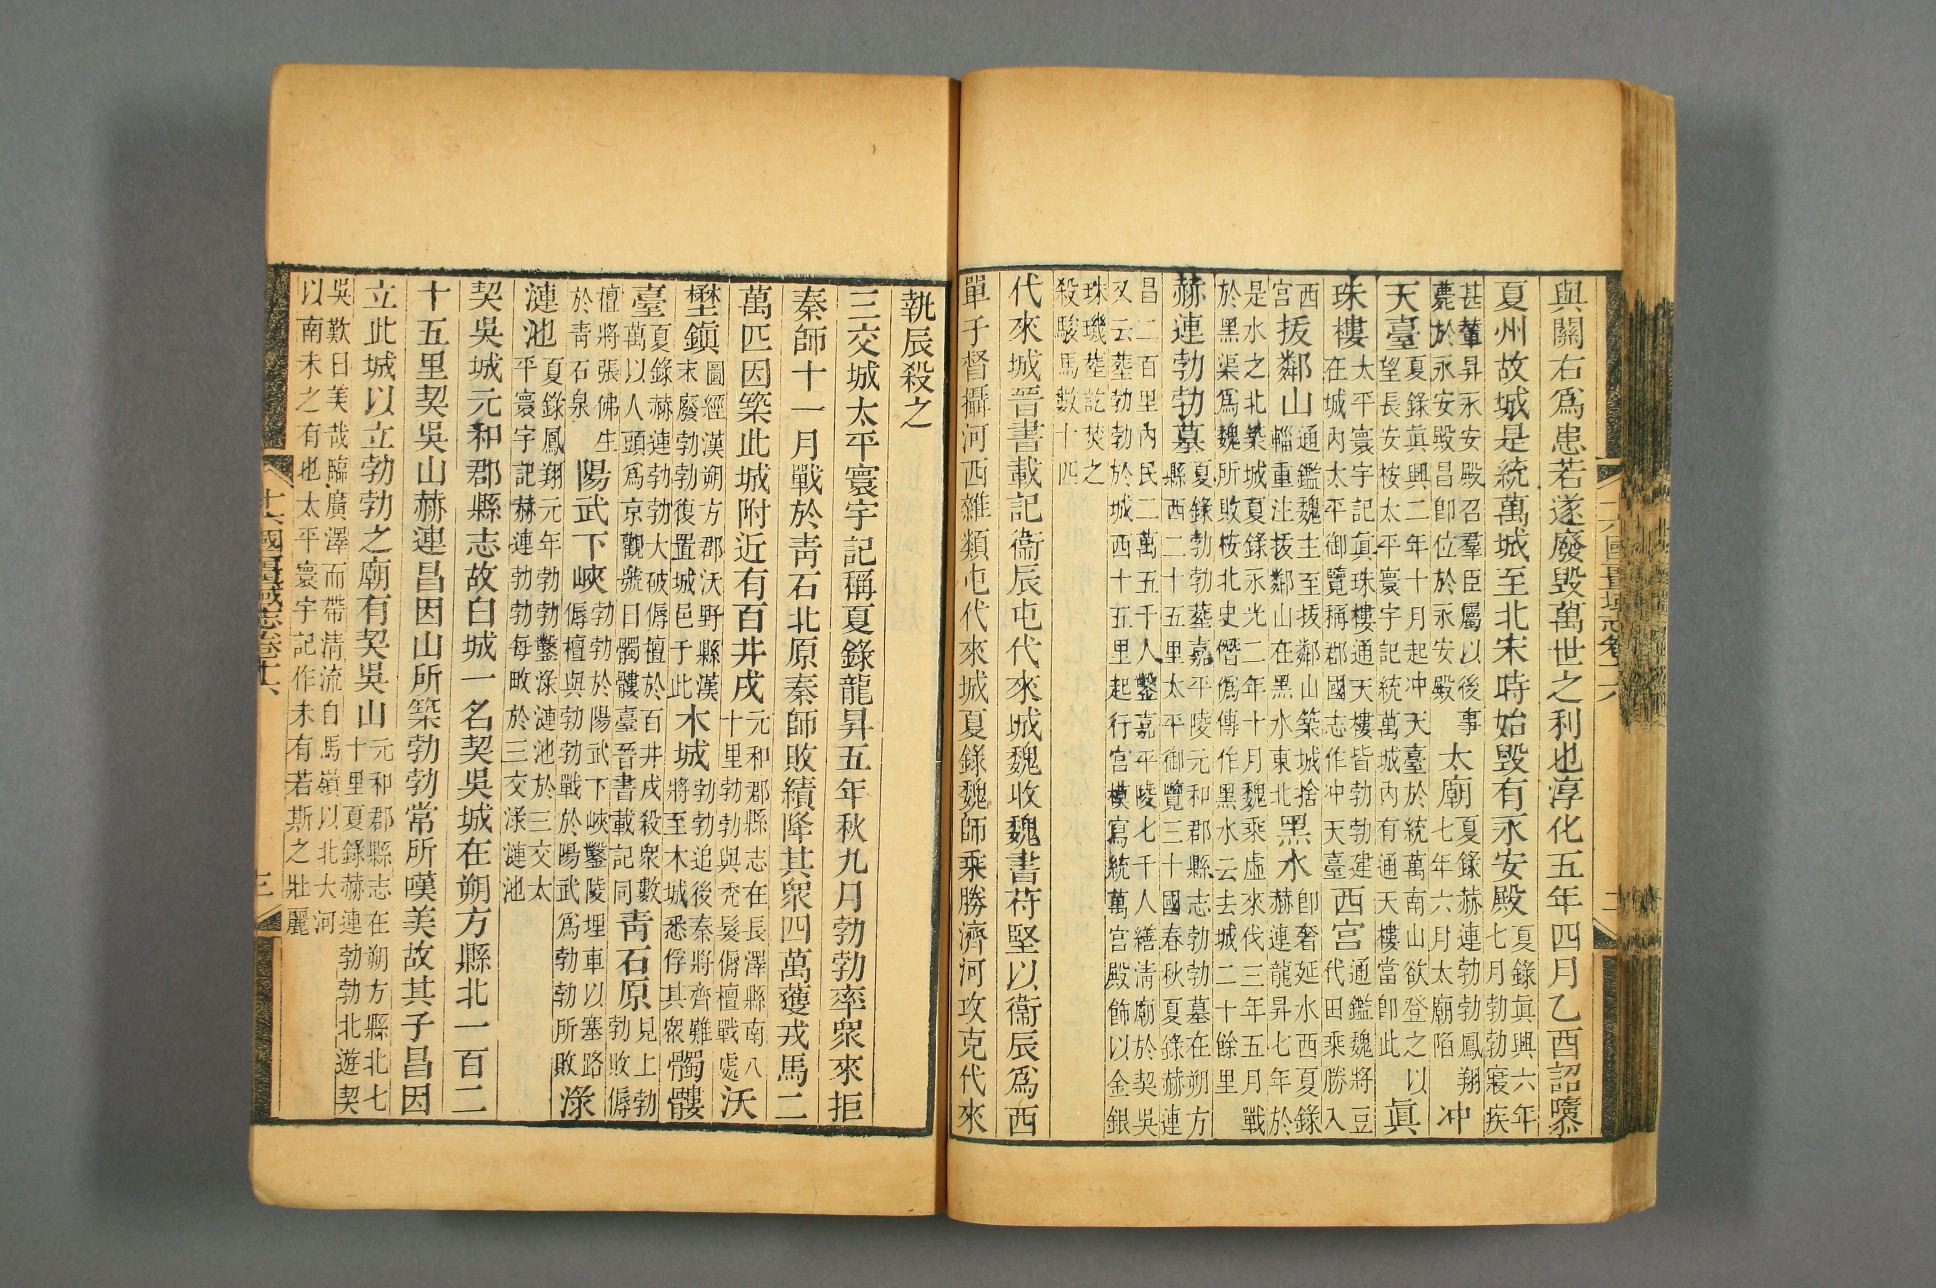 與關右爲患若遂廢毀萬世之利也淳化五年四月乙酉詔隳
夏州故城是統萬城至北宋時始毀有永安殿
夏錄眞興六年
七月勃勃寢疾
甚輦昇永安殿召羣臣屬以後事
薨於永安殿昌卽位於永安殿
太廟
夏錄赫連勃勃鳳翔
七年六月太廟陷
冲
天臺
夏錄眞興二年十月起冲天臺於統萬南山欲登之以
望長安桉太平寰宇記統萬城內有通天樓當卽此
眞
珠樓
太平寰宇記眞珠樓通天樓皆勃勃建
在城內太平御覽稱郡國志作冲天臺
西宮
通鑑魏將豆
代田乘勝入
西
宮
拔鄰山
通鑑魏主至拔鄰山築城捨
輜重注拔鄰山在黑水東北
黑水
卽奢延水西夏錄
赫連龍昇七年於
是水之北築城夏錄永光二年十月魏乘虛來伐三年五月戰
於黑渠爲魏所敗桉北史僭僞傳作黑水云去城二十餘里
赫連勃勃墓
夏錄勃勃葬嘉平陵元和郡縣志勃勃墓在朔方
縣西二十五里太平御覽三十國春秋夏錄赫連
昌二百里內民二萬五千人鑿嘉平陵七千人繕淸廟於契吳
又云葬勃勃於城西十五里起行宮模寫統萬宮殿飾以金銀
珠璣葬訖焚之
殺駿馬數十匹
代來城晉書載記衞辰屯代來城魏收魏書苻堅以衞辰爲西
單于督攝河西雜類屯代來城夏錄魏師乘勝濟河攻克代來
執辰殺之
三交城太平寰宇記稱夏錄龍昇五年秋九月勃勃率衆來拒
秦師十一月戰於靑石北原秦師敗績降其衆四萬獲戎馬二
萬匹因築此城附近有百井戍
元和郡縣志在長澤縣南八
十里勃勃與禿髮傉檀戰處
沃
壄鎭
圖經漢朔方郡沃野縣漢
末廢勃勃復置城邑于此
木城
勃勃追後秦將齊難
將至木城悉俘其衆
髑髏
臺
夏錄赫連勃勃大破傉檀於百井戍殺衆數
萬以人頭爲京觀號曰髑髏臺晉書載記同
靑石原
見上勃
勃敗傉
檀將張佛生
於靑石泉
陽武下峽
勃勃於陽武下峽鑿陵埋車以塞路
傉檀與勃勃戰於陽武爲勃勃所敗
淥
漣池
夏錄鳳翔元年勃勃鑿淥漣池於三交太
平寰宇記赫連勃勃每畋於三交淥漣池
契吳城元和郡縣志故白城一名契吳城在朔方縣北一百二
十五里契吳山赫連昌因山所築勃勃常所嘆美故其子昌因
立此城以立勃勃之廟有契吳山
元和郡縣志在朔方縣北七
十里夏錄赫連勃勃北遊契
吳歎曰美哉臨廣澤而帶淸流自馬嶺以北大河
以南未之有也太平寰宇記作未有若斯之壯麗
十六國疆域志卷十六
三